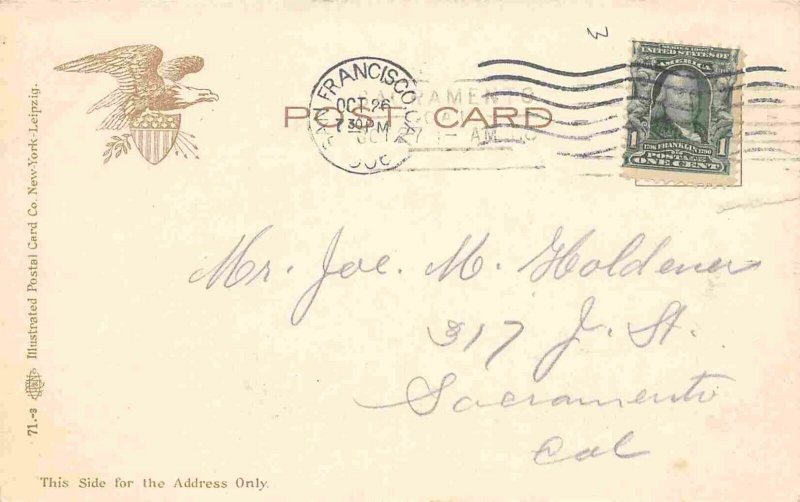 3
SAN FRANCISCO, CAL.
OCT 26
7 30 PM
SACRAMENTO
OCT 27
AM
SERIES 1902
UNITED STATES OF
AMERICA
1 1706 FRANKLIN 1790 1
POSTAGE
ONE CENT
POST CARD
Mr. Joe. M. Holdener
317 J. St.
Sacramento
Cal
71.-3 Illustrated Postal Card Co. New-York-Leipzig.
This Side for the Address Only.